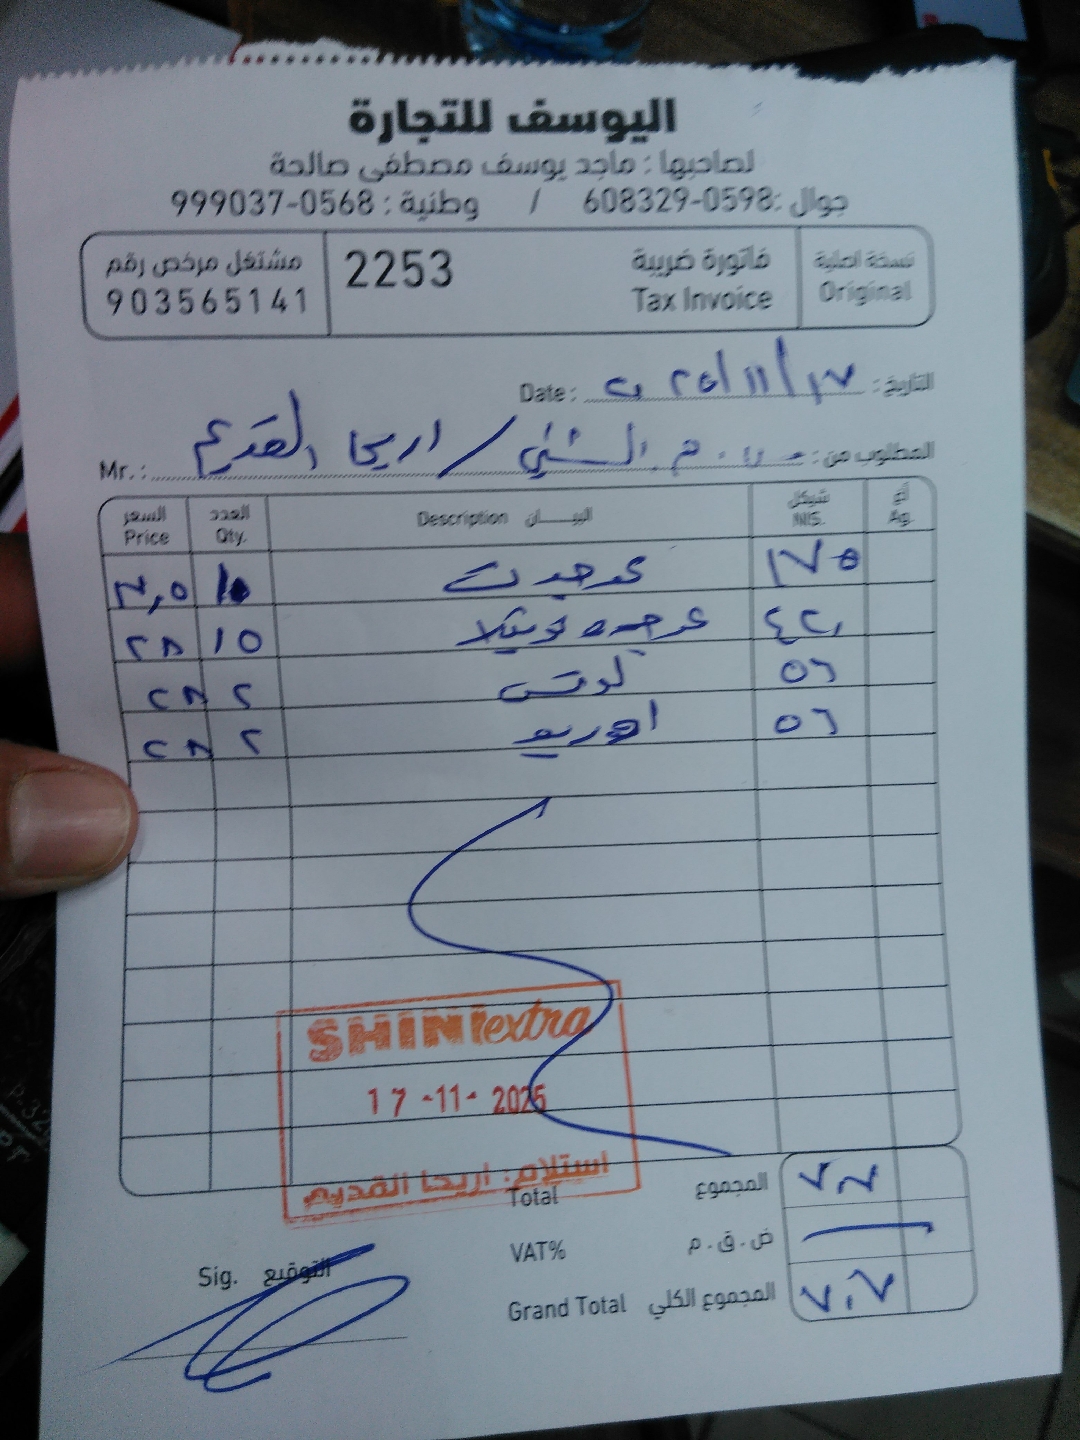 اليوسف للتجارة
لصاحبها : ماجد يوسف مصطفى صالحة
جوال :0598-608329 / وطنية : 0568-999037
نسخة اصلية
Original
فاتورة ضريبة
Tax Invoice
2253
مشتغل مرخص رقم
903565141
التاريخ : ٢٠٢٥/١١/١٧ Date :
المطلوب من : الشني / اريحا القديم Mr. :
أغ Ag. شيكل NIS. البيـــــان Description العدد Qty. السعر Price
١٧٥
٤٢٠ ١٥ ٢٨
٥٦ لوتس ٢ ٢٨
٥٦ اوريو ٢ ٢٨
SHINIextra
17 -11- 2025
استلام: اريحا القديم
المجموع Total
ض . ق . م VAT%
المجموع الكلي Grand Total ٧٠٧
التوقيع Sig.